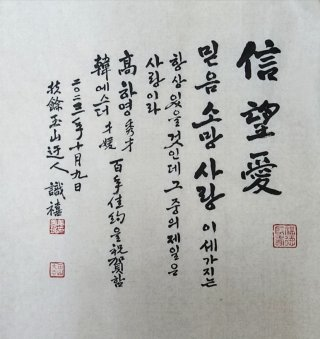 信望愛
믿음 소망 사랑 이 세 가지는
항상 있을 것인데 그 중의 제일은
사랑이라
高하영 秀才
韓에스더 才媛 百年佳約을 祝賀함
二〇二三年 十月 九日
扶餘玉山迂人 識禧